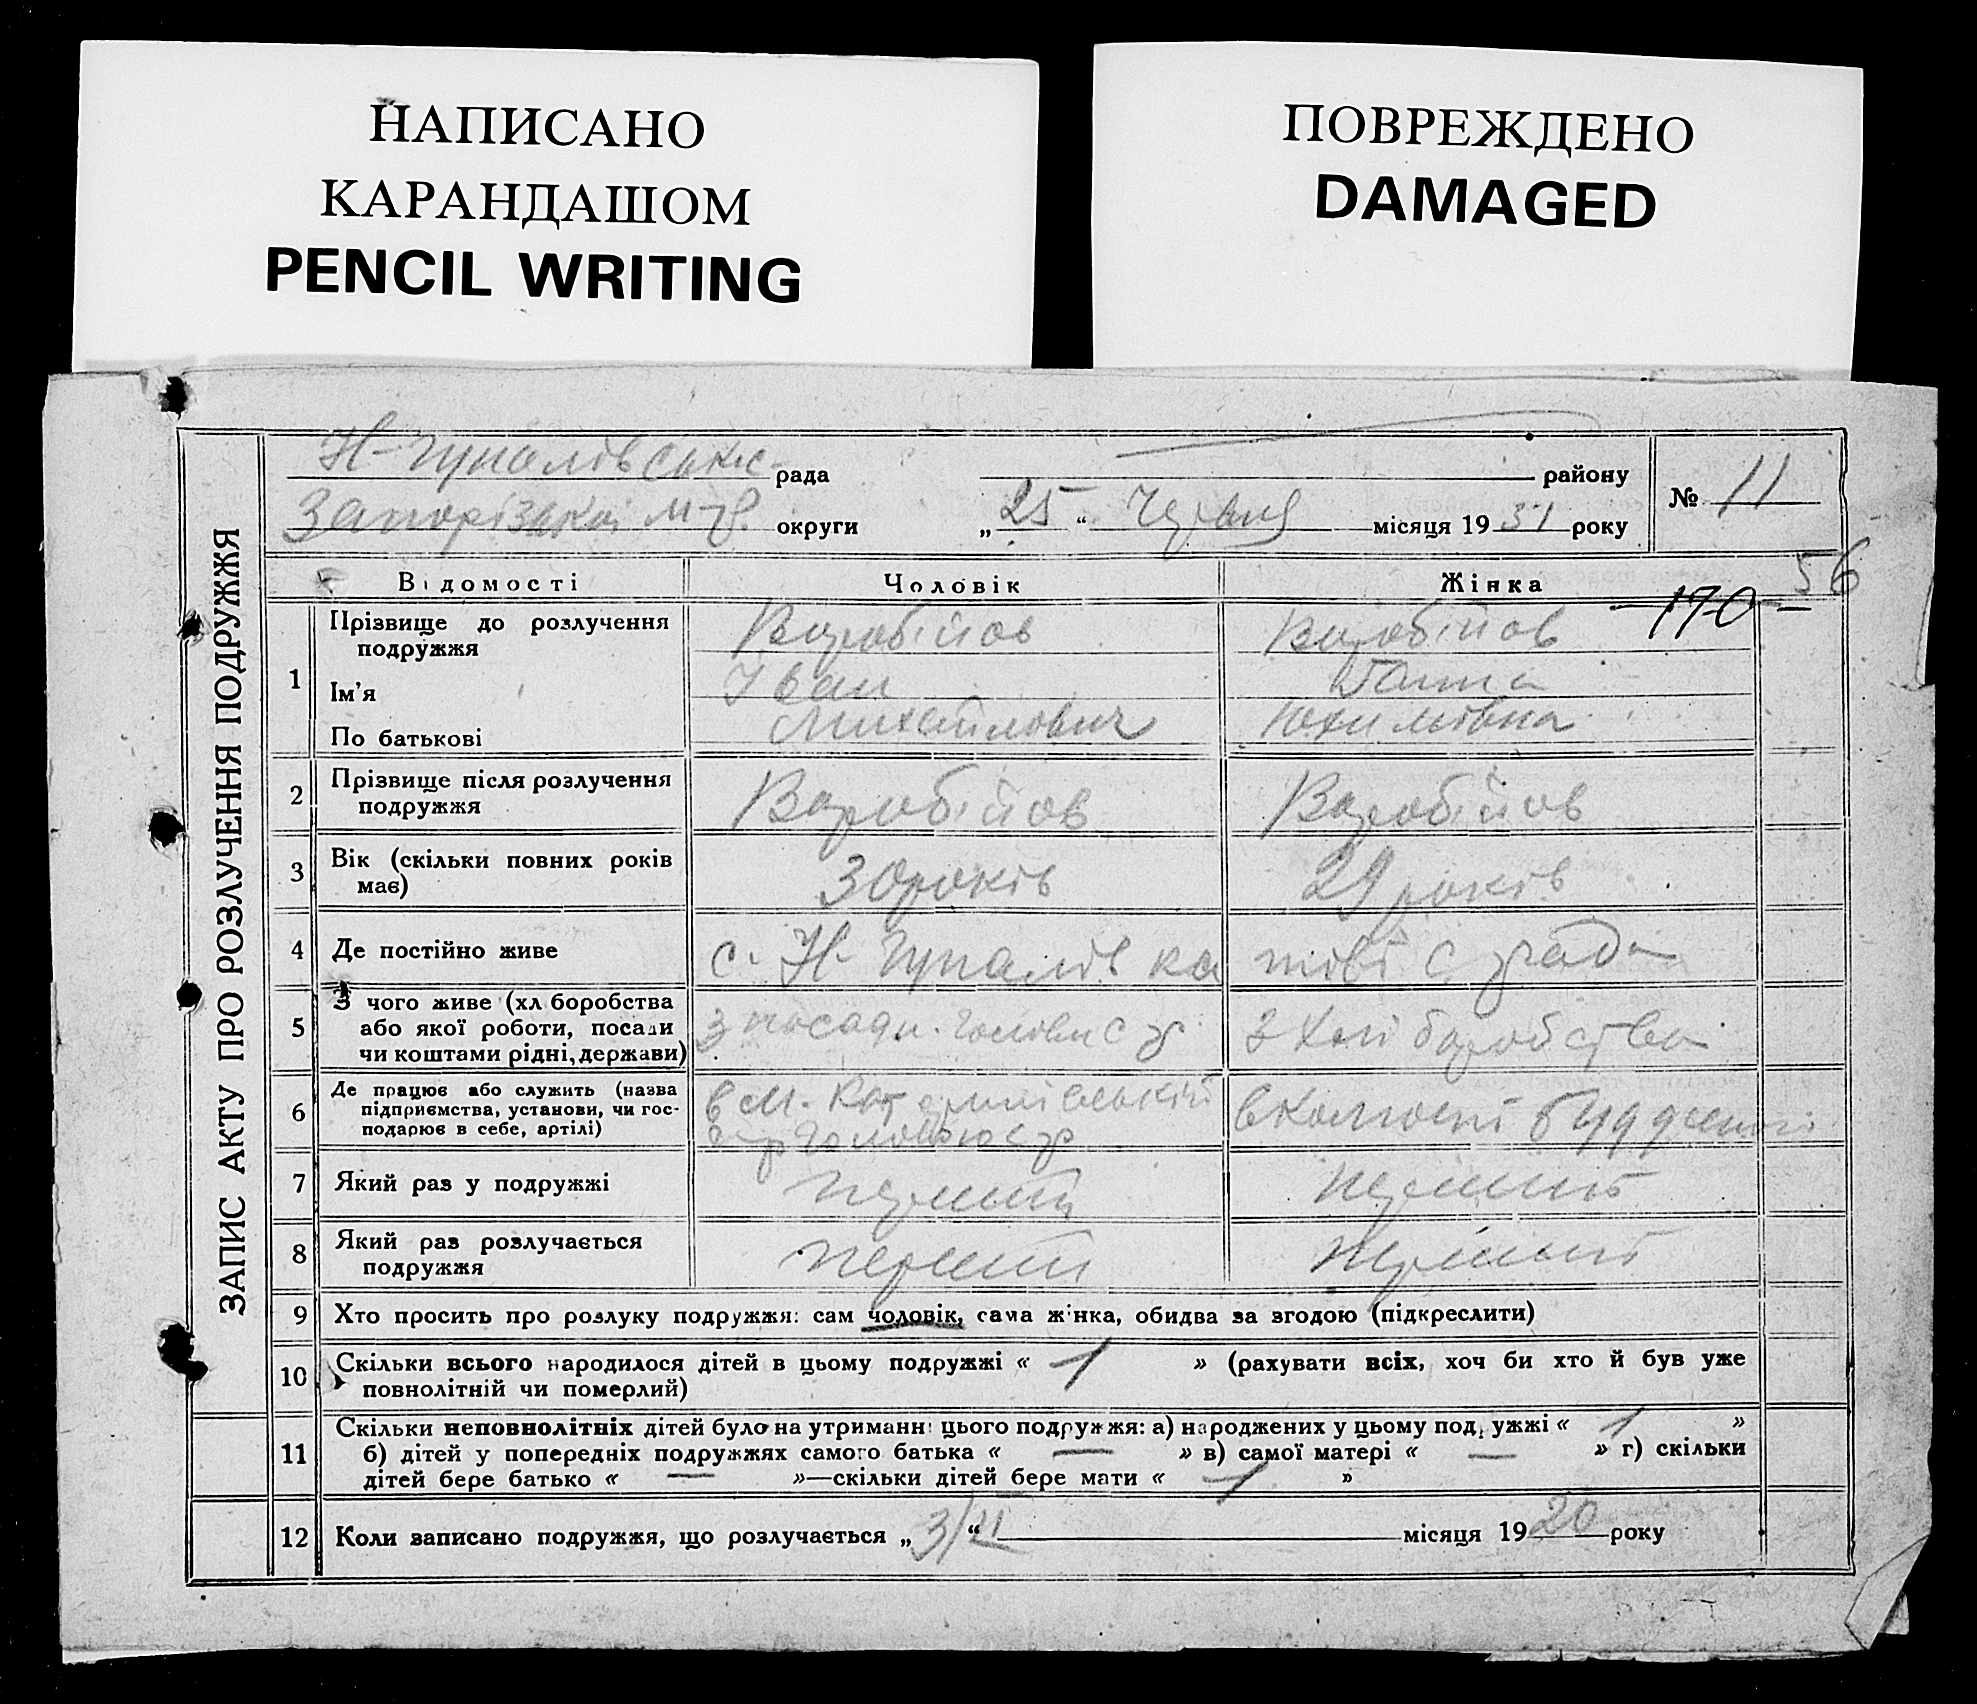 НАПИСАНО
КАРАНДАШОМ
PENCIL WRITING
ПОВРЕЖДЕНО
DAMAGED
ЗАПИС АКТУ ПРО РОЗЛУЧЕННЯ ПОДРУЖЖЯ
Н-Гупалівська рада району
Запорізької округи „25“ Червня місяця 1931 року
№ 11
56
Відомості Чоловік Жінка
170
1 Прізвище до розлучення подружжя Воробійов Воробійов
Ім'я Іван Ганна
По батькові Михайлович Юхимівна
2 Прізвище після розлучення подружжя Воробійов Воробійов
3 Вік (скільки повних років має) 30 років 29 років
4 Де постійно живе с. Н-Гупалівка тієї с ради
5 З чого живе (хліборобства або якої роботи, посади чи коштами рідні, держави) з посади голови с р з хліборобства
6 Де працює або служить (назва підприємства, установи, чи господарює в себе, артілі) в М. головою с р в колгоспі
7 Який раз у подружжі перший перший
8 Який раз розлучається подружжя перший перший
9 Хто просить про розлуку подружжя: сам чоловік, сама жінка, обидва за згодою (підкреслити)
10 Скільки всього народилося дітей в цьому подружжі « 1 » (рахувати всіх, хоч би хто й був уже
повнолітній чи померлий)
11 Скільки неповнолітніх дітей було на утриманні цього подружжя: а) народжених у цьому подружжі « 1 »
б) дітей у попередніх подружжях самого батька « — » в) самої матері « — » г) скільки
дітей бере батько « — »—скільки дітей бере мати « 1 »
12 Коли записано подружжя, що розлучається „3/II“ місяця 1920 року